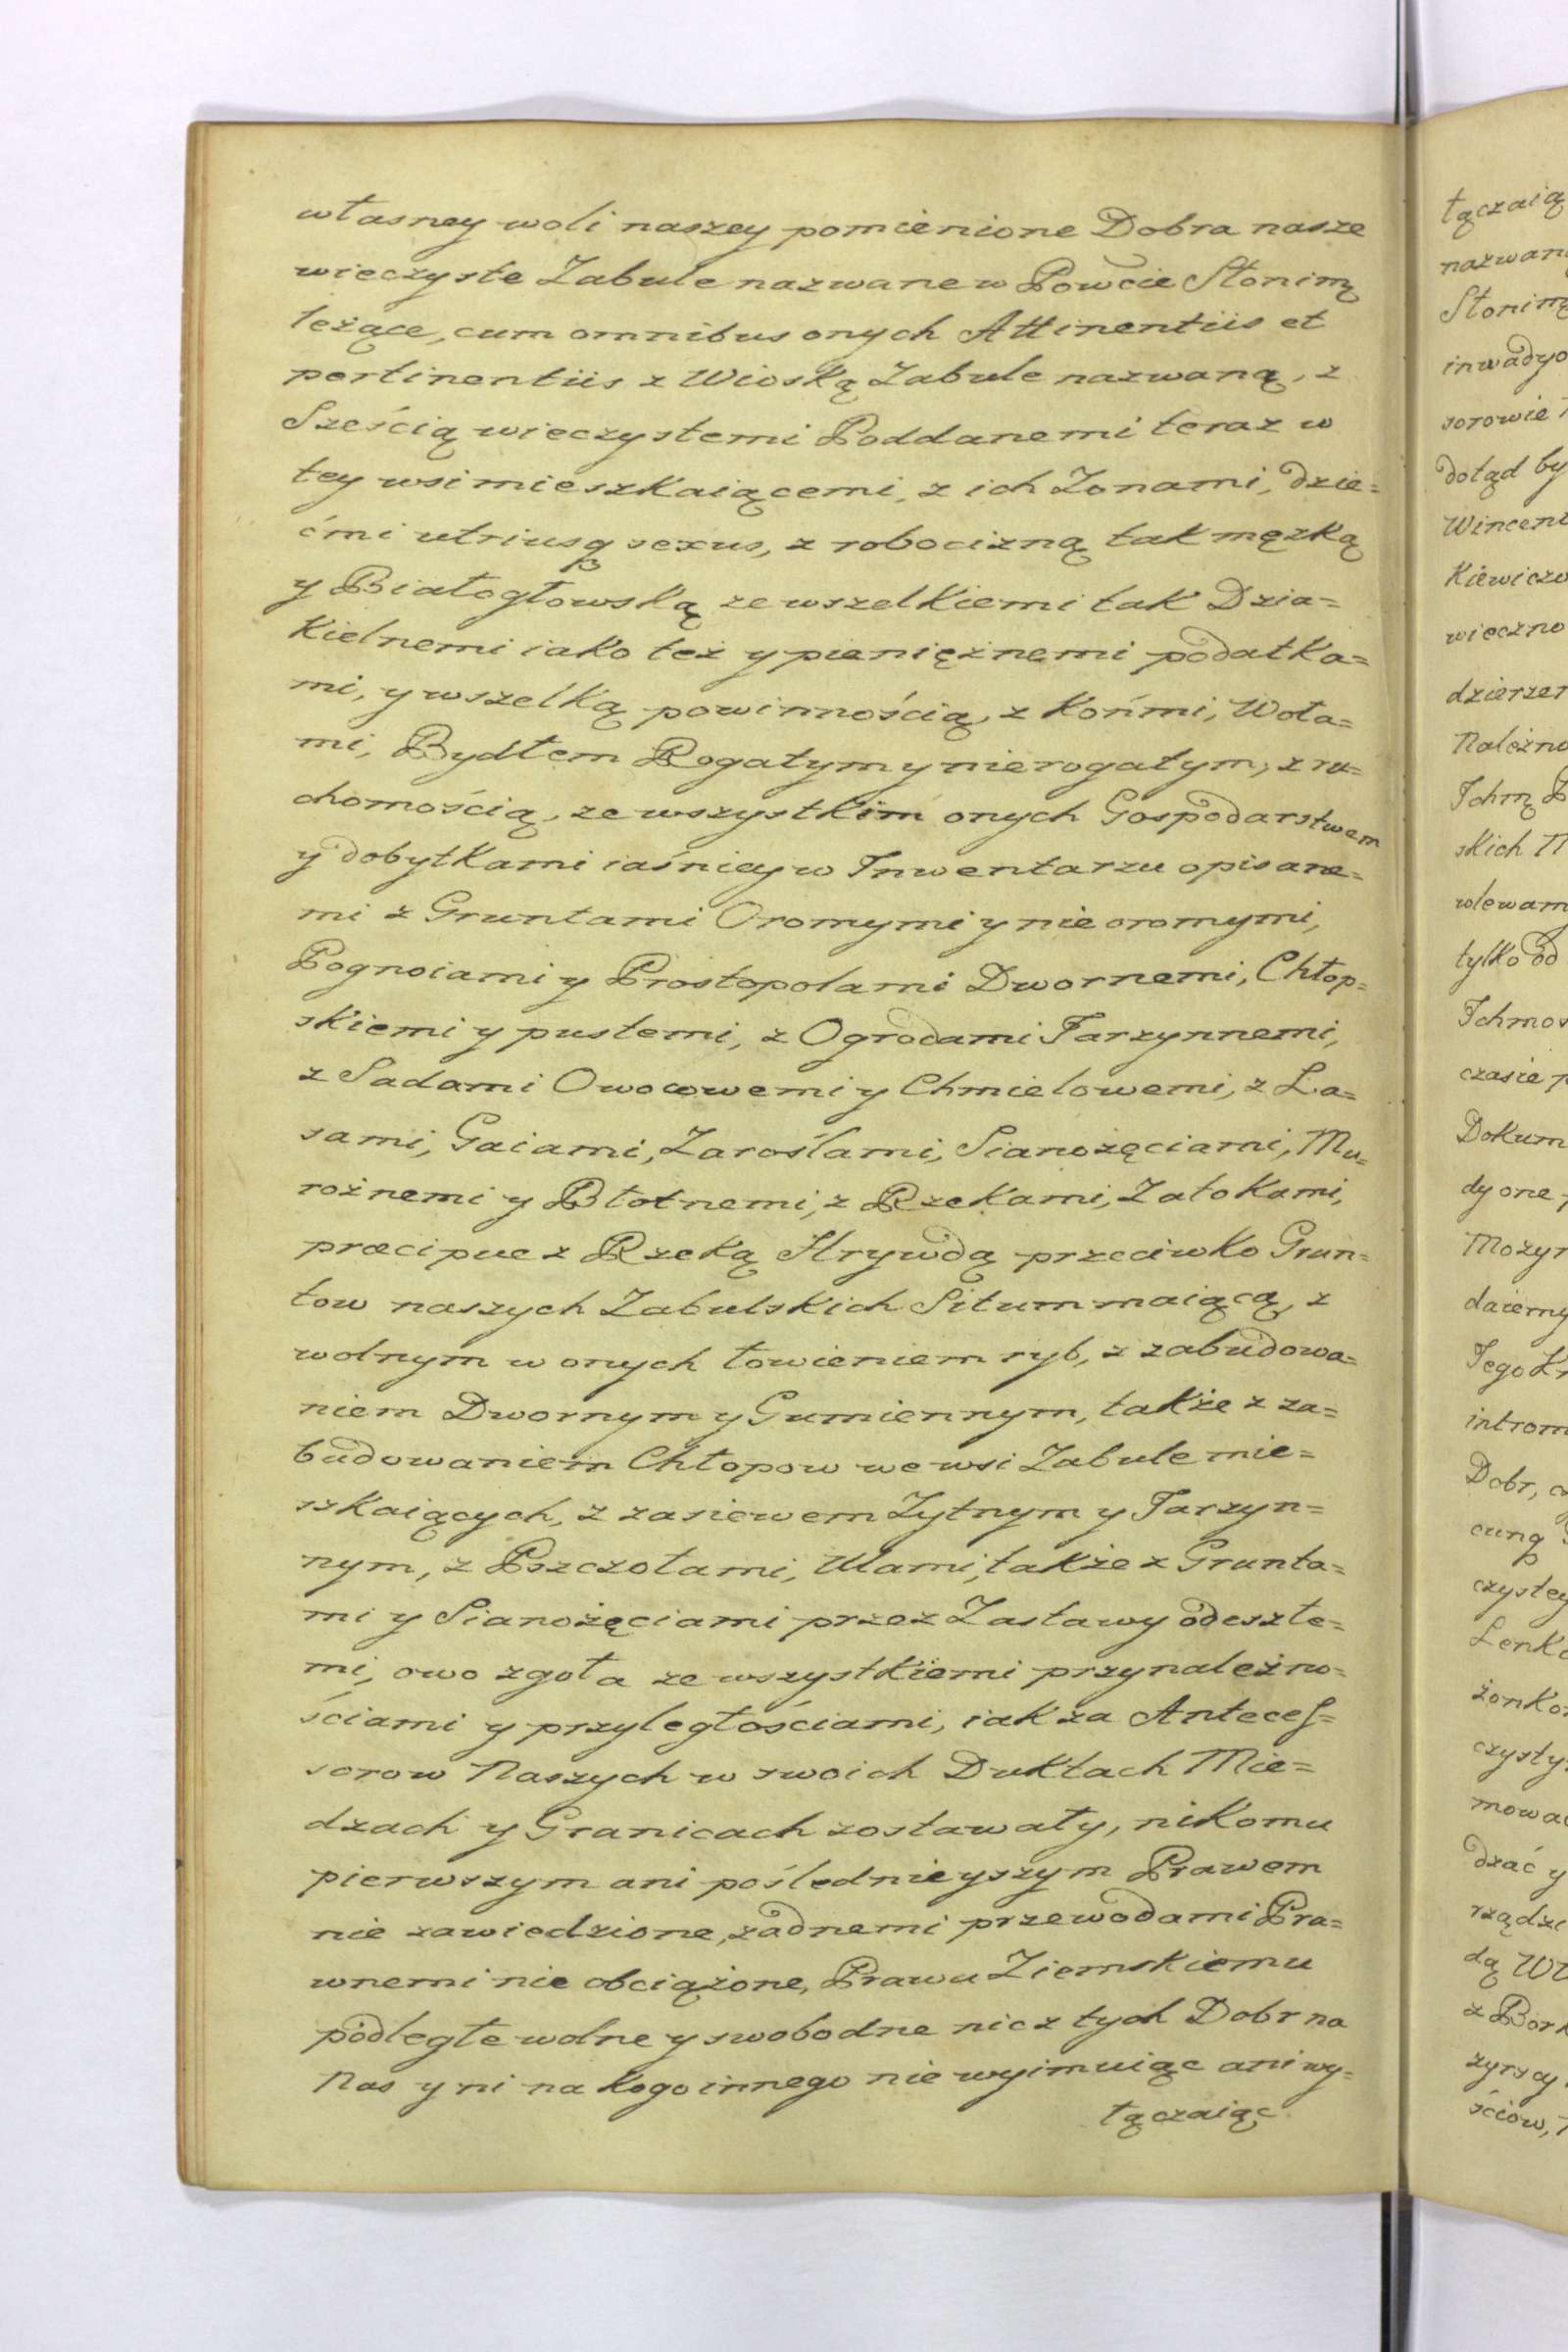 własney woli naszey pomienione Dobra nasze
wieczyste Zabule nazwane w Powcie Słonimą
leżące, cum omnibus onych Attinentiis et
pertinentiis z Wioską Zabule nazwaną, z
Sześcią wieczystemi Poddanemi teraz w
tey wsi mieszkaiącemi, z ich Zonami, dzie=
ćmi utriusq sexus, z robocizną tak męzką
y Białogłowską ze wszelkiemi tak Dzia=
kielnemi iako też y pieniężnemi podatka=
mi, y wszelką powinnością, z Końmi, Woła=
mi, Bydłem Rogatym y nierogatym, z ru=
chomością, ze wszystkim onych Gospodarstwem
y dobytkami iaśniey w Inwentarzu opisane=
mi z Gruntami Oromymi y nie oromymi,
Pognoiami y Prostopolami Dwornemi, Chłop=
skiemi y pustemi, z Ogrodami Jarzynnemi,
z Sadami Owocowemi y Chmielowemi, z La=
sami, Gaiami, Zaroślami, Sianożęciami, Mu=
rożnemi y Błotnemi, z Rzekami, Zatokami,
præcipue z Rzeką Hrywdą przeciwko Grun=
tow naszych Zabulskich Situm maiącą, z
wolnym w onych łowieniem ryb, z zabudowa=
niem Dwornym y Gumiennym, także z za=
budowaniem Chłopow we wsi Zabule mie=
szkaiących, z zasiewem Zytnym y Jarzyn=
nym, z Pszczołami, Ulami, także z Grunta=
mi y Sianożęciami przez Zastawy odeszłe=
mi, owo zgoła ze wszystkiemi przynależno=
ściami y przyległościami, iak za Anteces=
sorow Naszych w swoich Duktach Mie=
dzach y Granicach zostawały, nikomu
pierwszym ani poślednieyszym Prawem
nie zawiedzione, żadnemi przewodami Pra=
wnemi nie obciążone, Prawu Ziemskiemu
podległe wolne y swobodne nic z tych Dobr na
Nas y ni na kogo innego nie wyimuiąc ani wy=
łączaiąc
łączaią
nazwan
Słonimą
inwadyo
sorowie
dotąd by
Wincent
Kiewiczo
wieczno
dzierzen
Należno
Ichmą
skich
wlewam
tylko od
Ichmos
czasie
Dokum
dy one
Mozyr
daiemy
Jego
introm
Dobr,
cunq
czystey
Lenk
żonko
czysty
mowa
dzać y
rządzi
dą
z Bor
zyrscy
ściow,